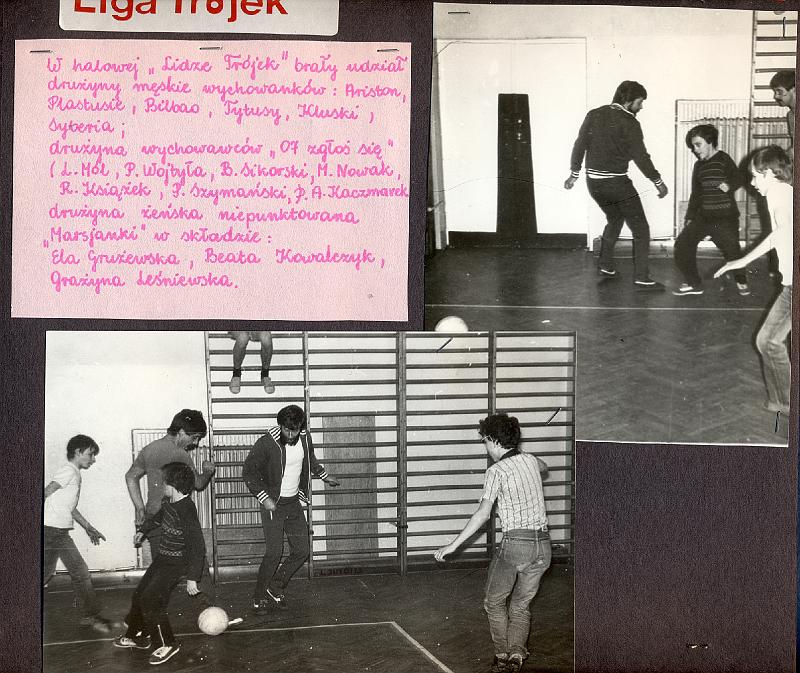 Liga Trójek
W halowej „Lidze Trójek" brały udział
drużyny męskie wychowanków: Ariston,
Plastusie, Bilbao, Tytusy, Kluski,
Syberia;
drużyna wychowawców „07 zgłoś się"
(L. Mól, P. Wojtyła, B. Sikorski, M. Nowak,
R. Książek, S. Szymański, p. A. Kaczmarek
drużyna żeńska niepunktowana
„Marsjanki" w składzie:
Ela Grużewska, Beata Kowalczyk,
Grażyna Leśniewska.